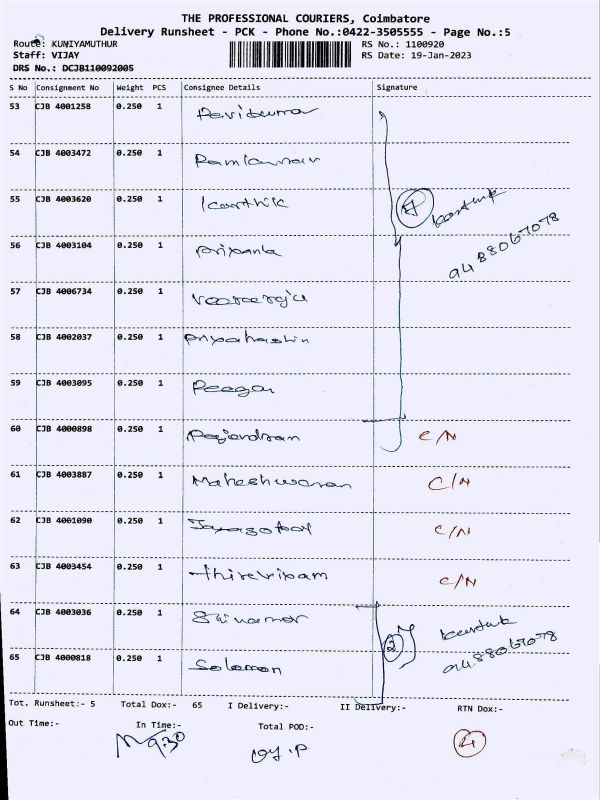 THE PROFESSIONAL COURIERS, Coimbatore
Delivery Runsheet - PCK - Phone No.:0422-3505555 - Page No.:5
Route: KUNIYAMUTHUR RS No.: 1100920
Staff: VIJAY RS Date: 19-Jan-2023
DRS No.: DCJB110092005
S No Consignment No Weight PCS Consignee Details Signature
53 CJB 4001258 0.250 1
54 CJB 4003472 0.250 1
55 CJB 4003620 0.250 1 Karthik
56 CJB 4003104 0.250 1 Priyanka
9488067078
57 CJB 4006734 0.250 1
58 CJB 4002037 0.250 1
59 CJB 4003095 0.250 1
60 CJB 4000898 0.250 1 C/N
61 CJB 4003887 0.250 1 Maheshwaran C/N
62 CJB 4001090 0.250 1 C/N
63 CJB 4003454 0.250 1 C/N
64 CJB 4003036 0.250 1
2
9488067078
65 CJB 4000818 0.250 1 Solomon
Tot. Runsheet:- 5 Total Dox:- 65 I Delivery:- II Delivery:- RTN Dox:-
Out Time:- In Time:- Total POD:-
9:30
4